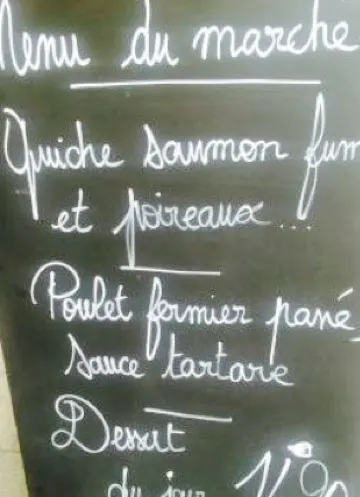 Menu du marche
Quiche saumon fum
et poireaux...
Poulet fermier pané
sauce tartare
Dessert
du jour